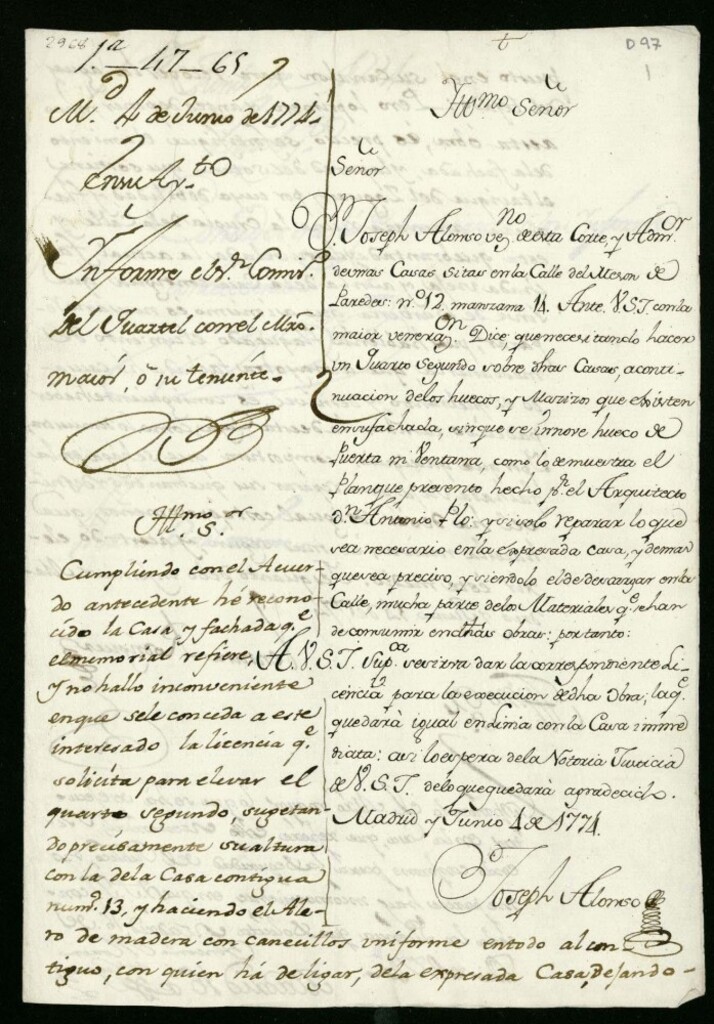 2968
1.ª - 47 - 65
M.d 4 de Junio de 1774.
En su Ay.to
Informe el s.r Comis.º
del Quartel con el Mro.
maior, ó su teniente.
Ill.mo s.or
Cumpliendo con el Acuer-
do antecedente hé recono-
cido la Casa y fachada q.e
el memorial refiere,
y no hallo inconveniente
en que se le conceda a este
interesado la licencia q.e
solicita para elevar el
quarto segundo, sugetan-
do precisamente su altura
con la de la Casa contigua
num.º 13, y haciendo el Ale-
ro de madera con canecillos uniforme en todo al con-
tiguo, con quien há de ligar, de la expresada Casa, dejando-
D97
1
Ill.mo Señor
Señor
D. Joseph Alonso vez.no de esta Corte, y Adm.or
de unas Casas sitas en la Calle del Meson de
Paredes: n.º 12. manzana 14. Ante V.S.I. con la
maior venera.on Dice, que necesitando hacer
un Quarto Segundo sobre dhas Casas, a conti-
nuacion de los huecos, y Mazizos que existen
en su fachada, sin que se innove hueco de
Puerta ni Ventana, como lo demuestra el
Plan que presento hecho p.r el Arquitecto
d.n Antonio Plo: y si solo reparar lo que
sea necesario en la expresada casa, y demas
que sea preciso, y siendolo el de descargar en la
Calle, mucha parte de los Materiales q.e se han
de consumir en dhas obras: por tanto:
A V.S.I. Sup.ca se sirva dar la correspondiente Li-
cencia para la execucion de dha Obra; la q.e
quedará igual en Linia con la Casa inme-
diata: asi lo espera de la Notoria Justicia
de V.S.I. de lo que quedará agradecido.
Madrid y Junio 4 de 1774.
Joseph Alonso